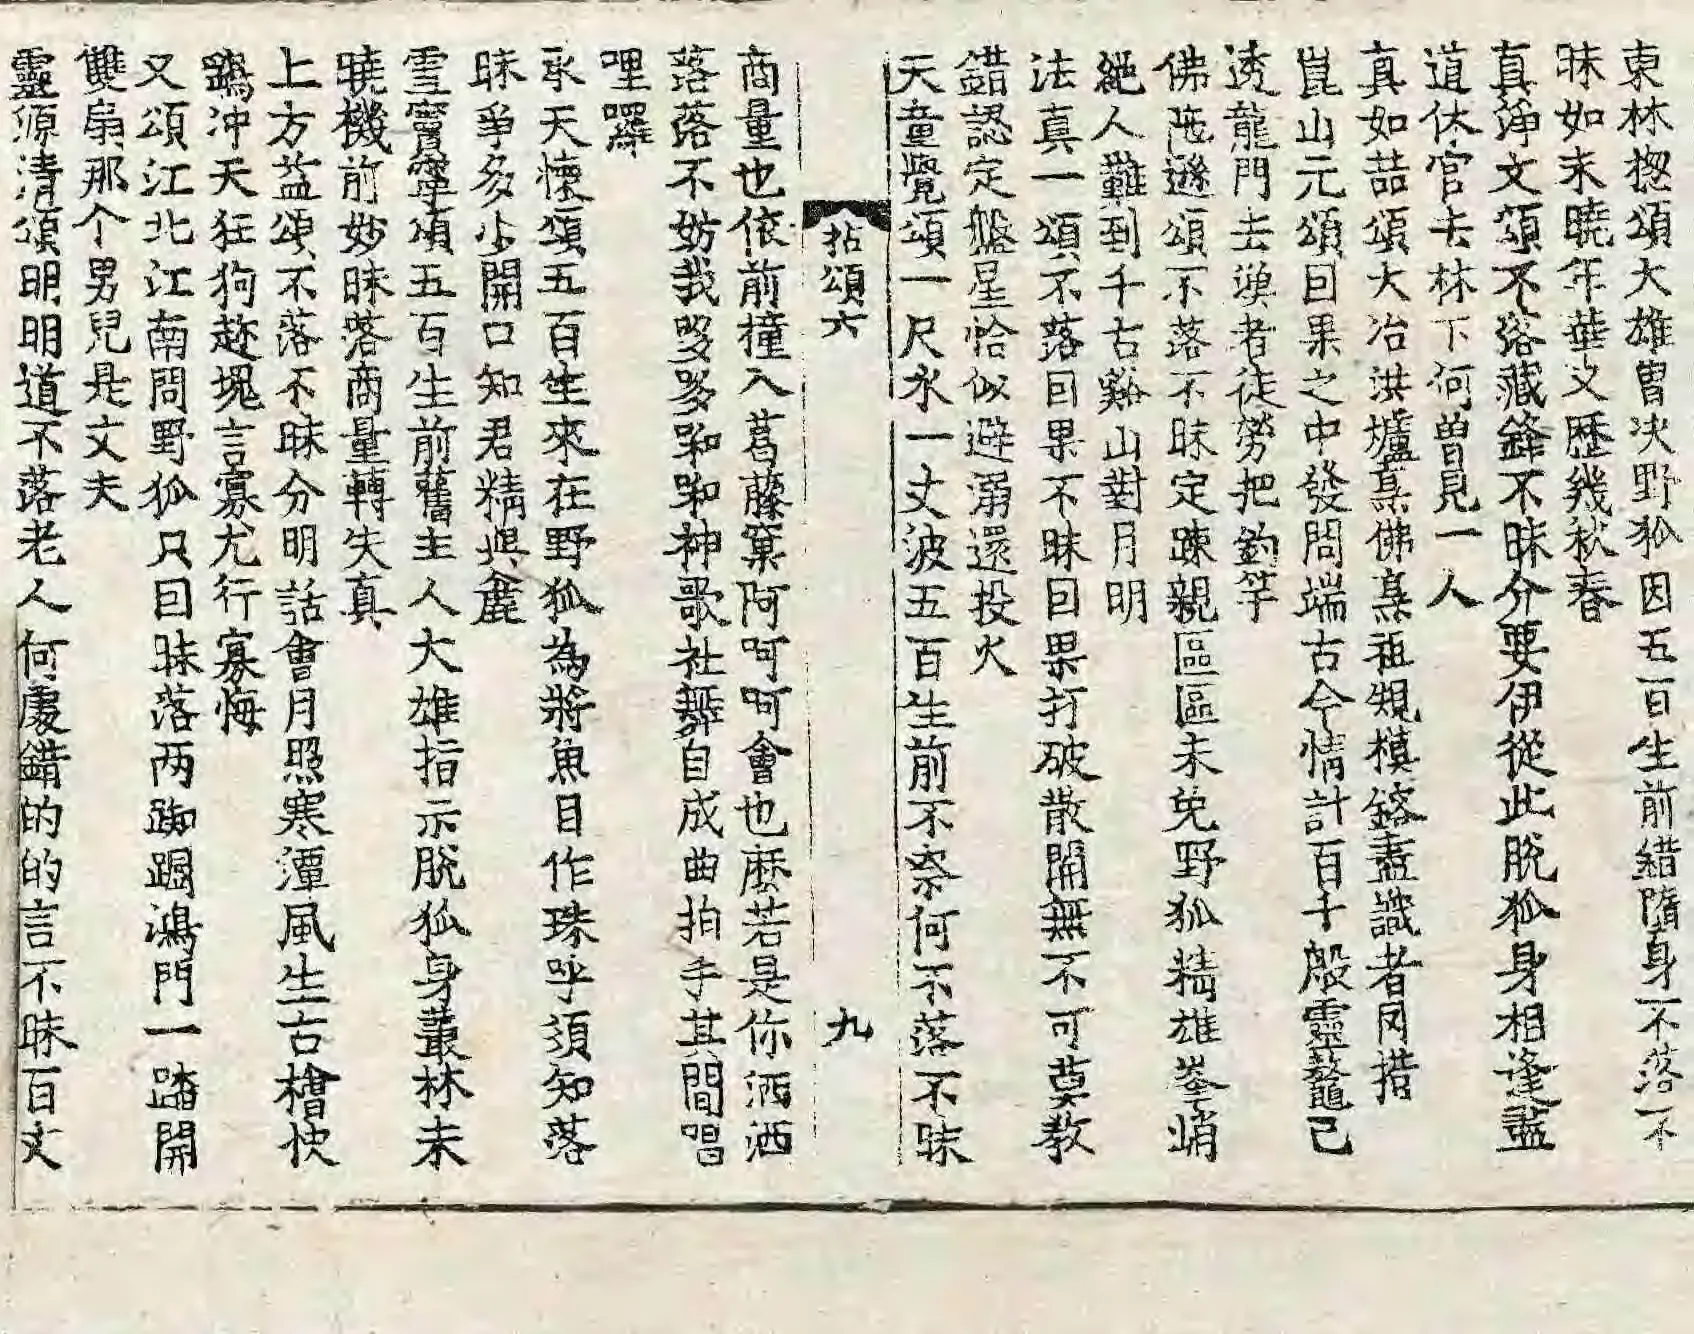 東林揔頌大雄曽决野狐因五百生前錯墮身不落不
昧如未曉年華又歷幾秋春
真淨文頌不落藏鋒不昧分要伊從此脫狐身相逢盡
道休官去林下何曽見一人
真如喆頌大冶洪爐烹佛烹祖規模鎔盡識者罔措
崑山元頌因果之中發問端古今情計百千般靈鼇已
透龍門去漢者徒勞把釣竿
佛陁遜頌不落不昧定踈親區區未免野狐精雄峯峭
絕人難到千古谿山對月明
法真一頌不落因果不昧因果打破散開無不可莫教
錯認定盤星恰似避溺還投火
天童覺頌一尺水一丈波五百生前不奈何不落不昧
拈頌六 九
商量也依前撞入葛藤窠阿呵呵會也麽若是你洒洒
落落不妨我哆哆和和神歌社舞自成曲拍手其間唱
哩囉
承天懷頌五百生來在野狐為將魚目作珠乎須知落
昧爭多少開口知君精與麁
雪竇寧頌五百生前舊主人大雄指示脫狐身叢林未
曉機前妙昧落商量轉失真
上方益頌不落不昧分明話會月照寒潭風生古檜快
鷂冲天狂狗趂塊言寡尤行寡悔
又頌江北江南問野狐只因昧落两踟蹰鴻門一踏開
雙扇那个男兒是丈夫
靈源清頌明明道不落老人何處錯的的言不昧百丈